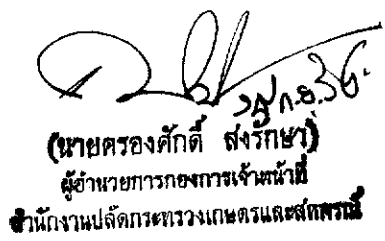 ก.ย. 36
(นายครองศักดิ์ สงรักษา)
ผู้อำนวยการกองการเจ้าหน้าที่
สำนักงานปลัดกระทรวงเกษตรและสหกรณ์